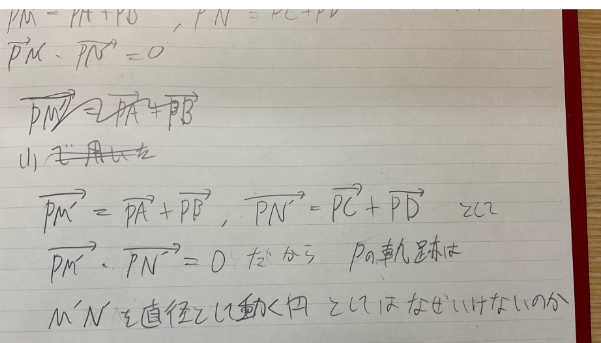 PM = PA + PB , PN = PC + PD
PM · PN = 0
PM' = PA + PB
(1) で用いた
PM' = PA + PB , PN' = PC + PD として
PM' · PN' = 0 だから Pの軌跡は
M'N'を直径として動く円 としてはなぜいけないのか